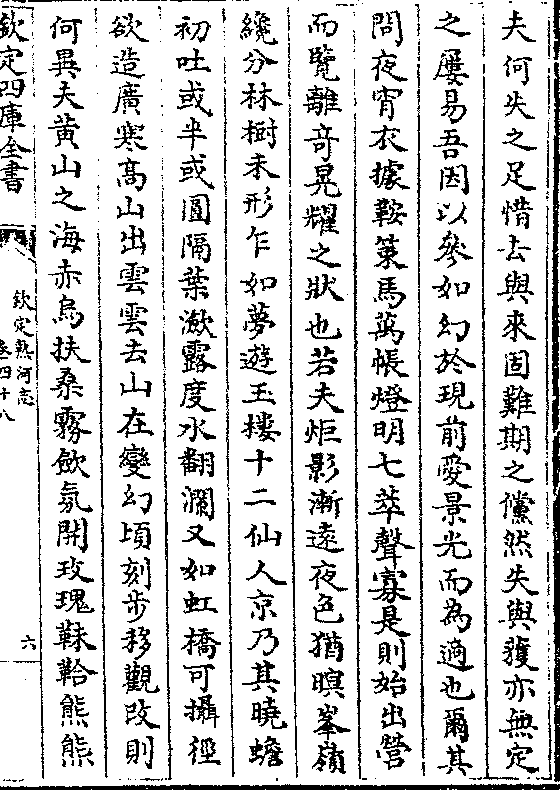 夫何失之足惜去與來固難期之儻然失與獲亦無定
之屢易吾因以參如幻於現前愛景光而為適也爾其
問夜宵衣據鞍策馬萬帳燈明七萃聲寡是則始出營
而覽離竒晃耀之狀也若夫炬影漸逺夜色猶暝峯嶺
纔分林樹未形乍如夢遊玉樓十二仙人京乃其曉蟾
初吐或半或圓隔葉漱露度水翻瀾又如虹橋可攝徑
欲造廣寒髙山出雲雲去山在變幻頃刻步移觀改則
何異夫黄山之海赤烏扶桑霧歛氛開玫瑰靺鞈熊熊
欽定四庫全書
欽定熱河志
卷四十八
六